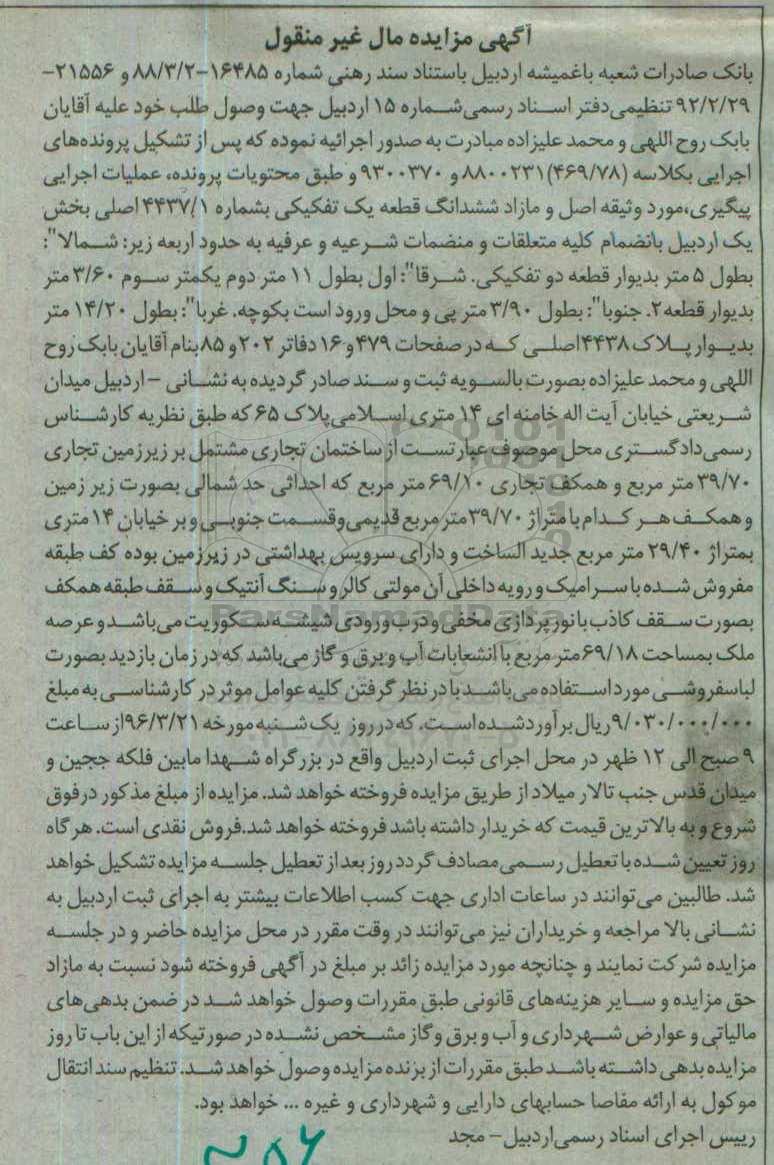 آگهی مزایده مال غیر منقول
بانک صادرات شعبه باغمیشه اردبیل باستناد سند رهنی شماره ۱۶۴۸۵-۸۸/۳/۲ و ۲۱۵۵۶-
۹۲/۲/۲۹ تنظیمی دفتر اسناد رسمی شماره ۱۵ اردبیل جهت وصول طلب خود علیه آقایان
بابک روح اللهی و محمد علیزاده مبادرت به صدور اجرائیه نموده که پس از تشکیل پرونده‌های
اجرایی بکلاسه (۴۶۹/۷۸) ۸۸۰۰۲۳۱ و ۹۳۰۰۳۷۰ و طبق محتویات پرونده، عملیات اجرایی
پیگیری،مورد وثیقه اصل و مازاد ششدانگ قطعه یک تفکیکی بشماره ۴۴۳۷/۱ اصلی بخش
یک اردبیل بانضمام کلیه متعلقات و منضمات شرعیه و عرفیه به حدود اربعه زیر: شمالا":
بطول ۵ متر بدیوار قطعه دو تفکیکی. شرقا": اول بطول ۱۱ متر دوم یکمتر سوم ۳/۶۰ متر
بدیوار قطعه۲. جنوبا": بطول ۳/۹۰ متر پی و محل ورود است بکوچه. غربا": بطول ۱۴/۲۰ متر
بدیوار پلاک ۴۴۳۸اصلی که در صفحات ۴۷۹ و ۱۶ دفاتر ۲۰۲ و ۸۵ بنام آقایان بابک روح
اللهی و محمد علیزاده بصورت بالسویه ثبت و سند صادر گردیده به نشانی – اردبیل میدان
شریعتی خیابان آیت اله خامنه ای ۱۴ متری اسلامی پلاک ۶۵ که طبق نظریه کارشناس
رسمی دادگستری محل موصوف عبارتست از ساختمان تجاری مشتمل بر زیرزمین تجاری
۳۹/۷۰ متر مربع و همکف تجاری ۶۹/۱۰ متر مربع که احداثی حد شمالی بصورت زیر زمین
و همکف هر کدام با متراژ ۳۹/۷۰ متر مربع قدیمی وقسمت جنوبی و بر خیابان ۱۴ متری
بمتراژ ۲۹/۴۰ متر مربع جدید الساخت و دارای سرویس بهداشتی در زیرزمین بوده کف طبقه
مفروش شده با سرامیک و رویه داخلی آن مولتی کالر و سنگ آنتیک و سقف طبقه همکف
بصورت سقف کاذب با نورپردازی مخفی و درب ورودی شیشه سکوریت می‌باشد و عرصه
ملک بمساحت ۶۹/۱۸ متر مربع با انشعابات آب و برق و گاز می‌باشد که در زمان بازدید بصورت
لباسفروشی مورد استفاده می‌باشد با در نظر گرفتن کلیه عوامل موثر در کارشناسی به مبلغ
۹/۰۳۰/۰۰۰/۰۰۰ ریال برآورد شده است. که در روز یک شنبه مورخه ۹۶/۳/۲۱ از ساعت
۹ صبح الی ۱۲ ظهر در محل اجرای ثبت اردبیل واقع در بزرگراه شهدا مابین فلکه ججین و
میدان قدس جنب تالار میلاد از طریق مزایده فروخته خواهد شد. مزایده از مبلغ مذکور درفوق
شروع و به بالاترین قیمت که خریدار داشته باشد فروخته خواهد شد.فروش نقدی است. هرگاه
روز تعیین شده با تعطیل رسمی مصادف گردد روز بعد از تعطیل جلسه مزایده تشکیل خواهد
شد. طالبین می‌توانند در ساعات اداری جهت کسب اطلاعات بیشتر به اجرای ثبت اردبیل به
نشانی بالا مراجعه و خریداران نیز می‌توانند در وقت مقرر در محل مزایده حاضر و در جلسه
مزایده شرکت نمایند و چنانچه مورد مزایده زائد بر مبلغ در آگهی فروخته شود نسبت به مازاد
حق مزایده و سایر هزینه‌های قانونی طبق مقررات وصول خواهد شد در ضمن بدهی‌های
مالیاتی و عوارض شهرداری و آب و برق وگاز مشخص نشده در صورتیکه از این باب تا روز
مزایده بدهی داشته باشد طبق مقررات از برنده مزایده وصول خواهد شد. تنظیم سند انتقال
موکول به ارائه مفاصا حسابهای دارایی و شهرداری و غیره ... خواهد بود.
رییس اجرای اسناد رسمی اردبیل- مجد
ParsNamadData